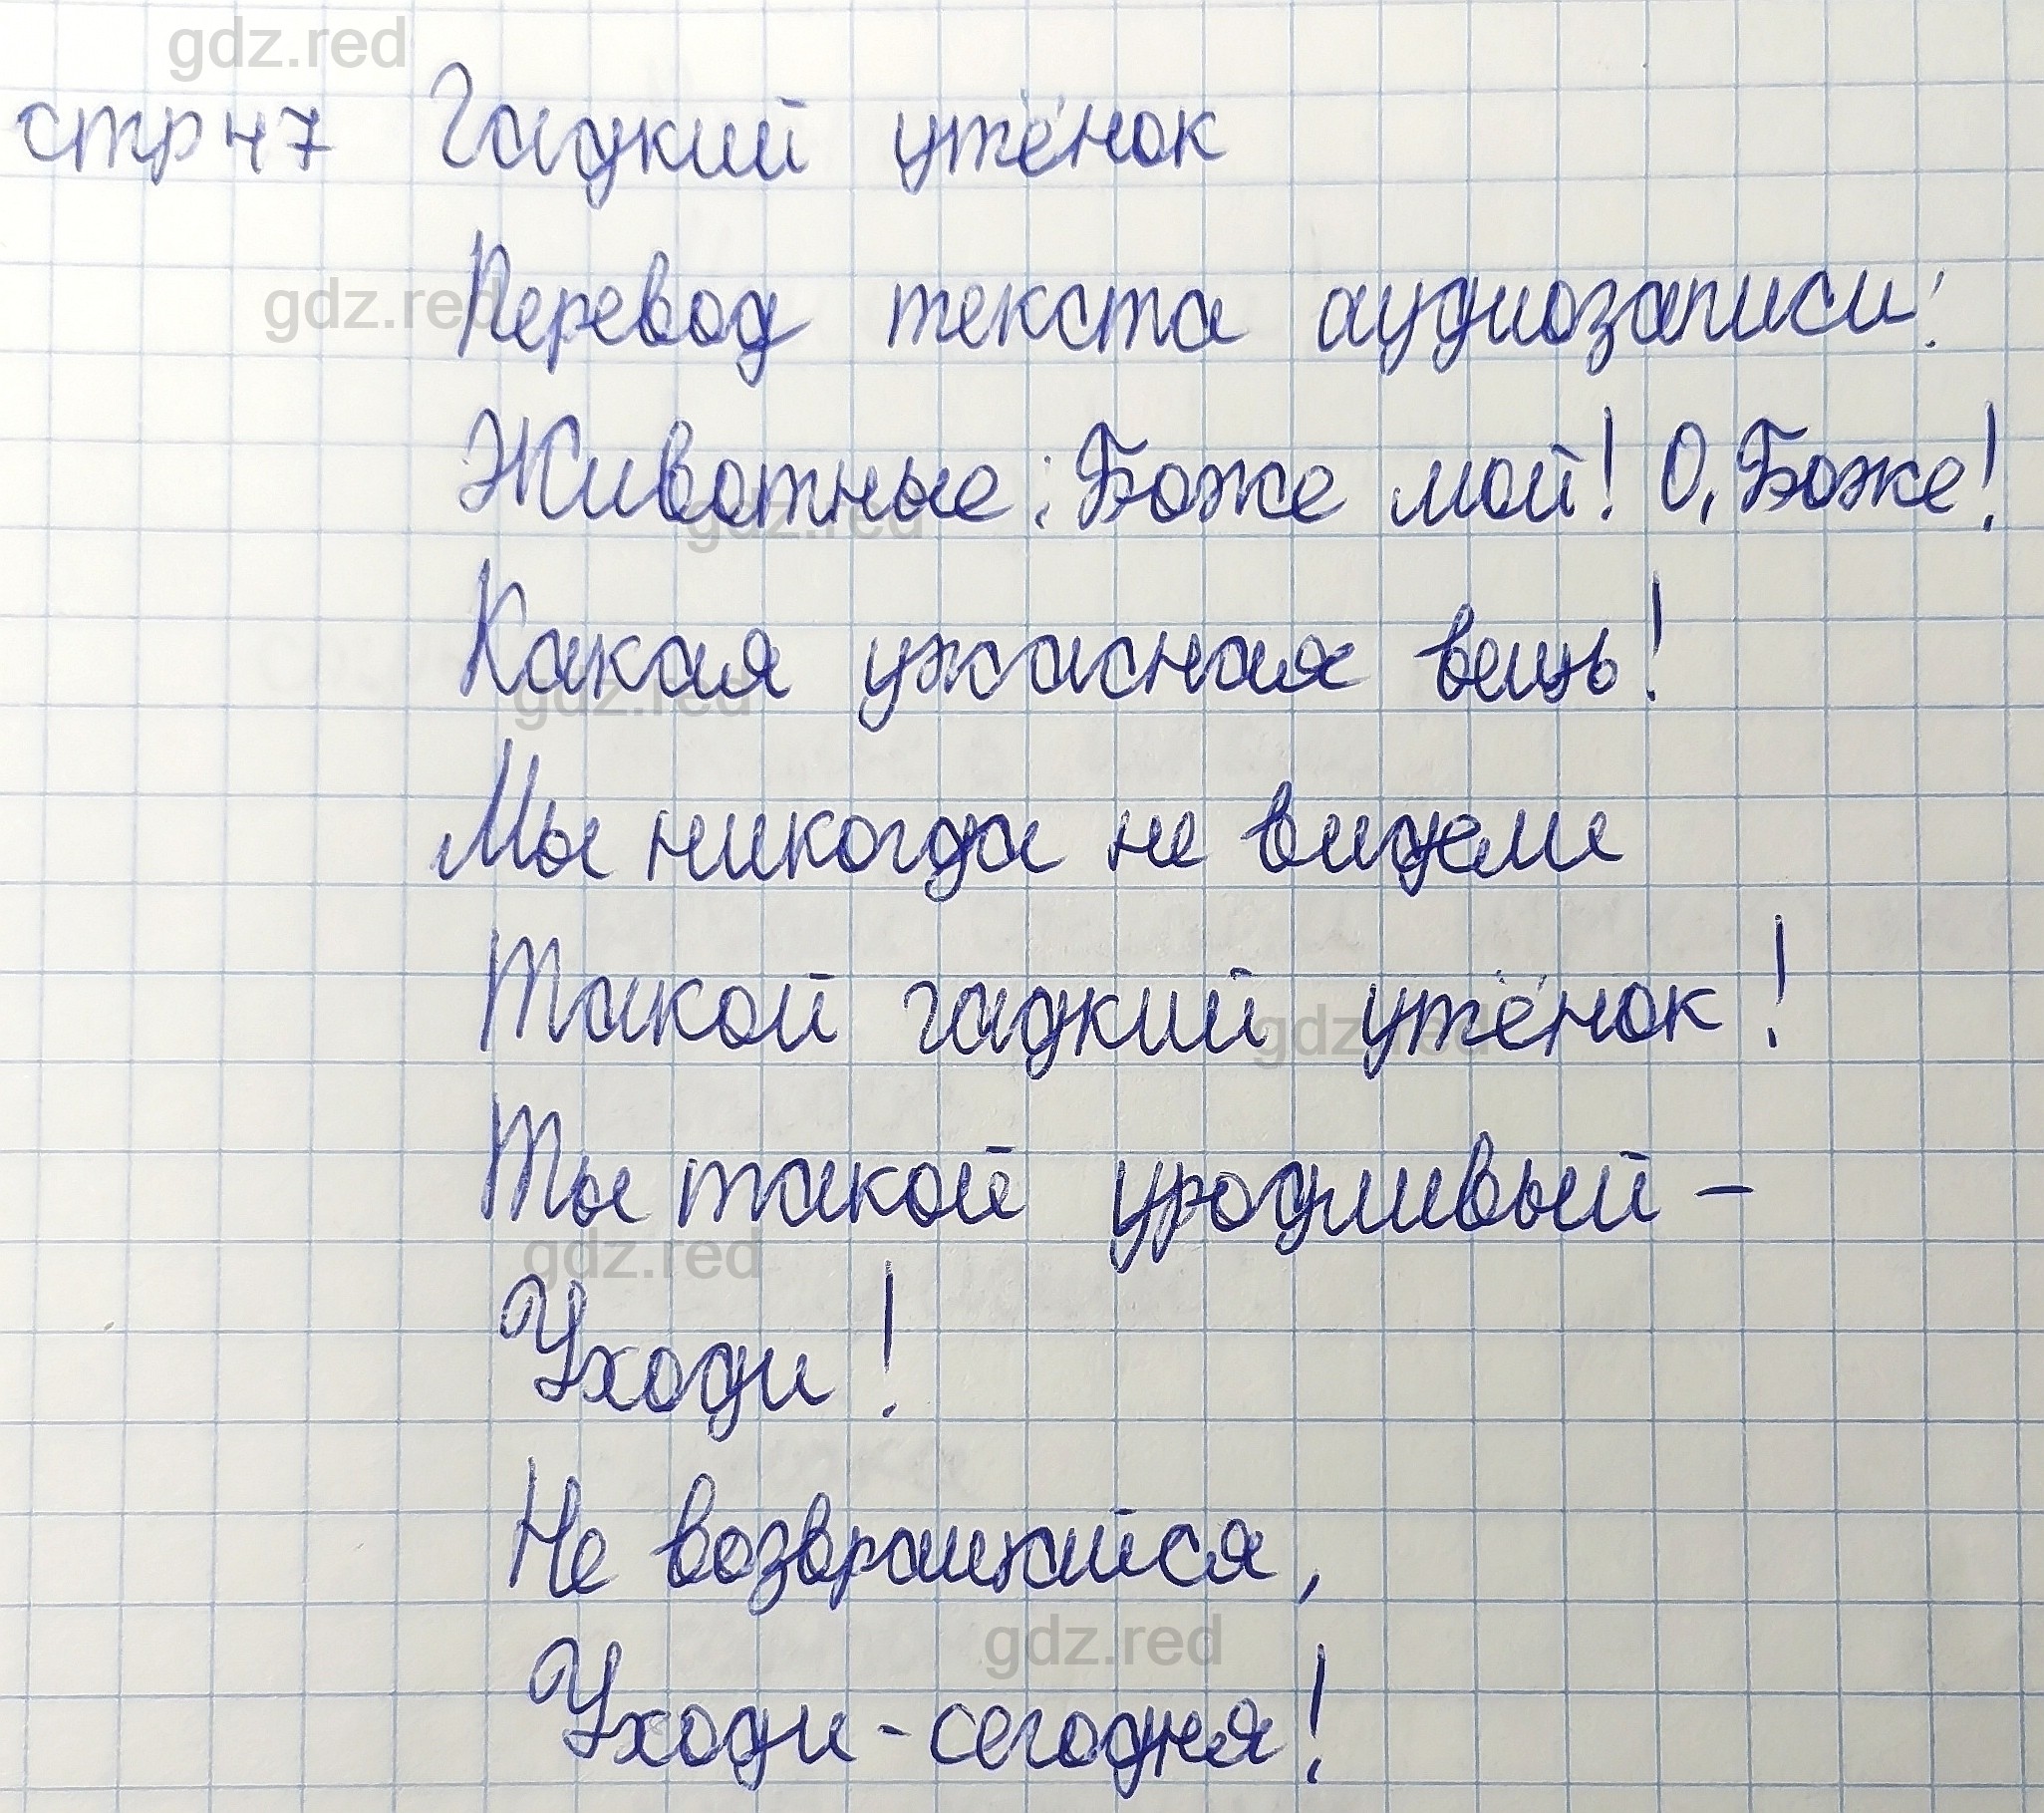 gdz.red
стр 47 Гадкий утёнок
gdz.red
Перевод текста аудиозаписи:
Животные: Боже мой! О, Боже!
gdz.red
Какая ужасная вещь!
gdz.red
Мы никогда не видели
Такой гадкий утёнок!
gdz.red
Ты такой уродливый -
gdz.red
Уходи!
Не возвращайся,
gdz.red
Уходи - сегодня!